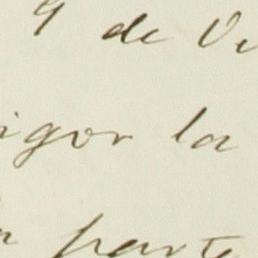 9 de
igor la
parte